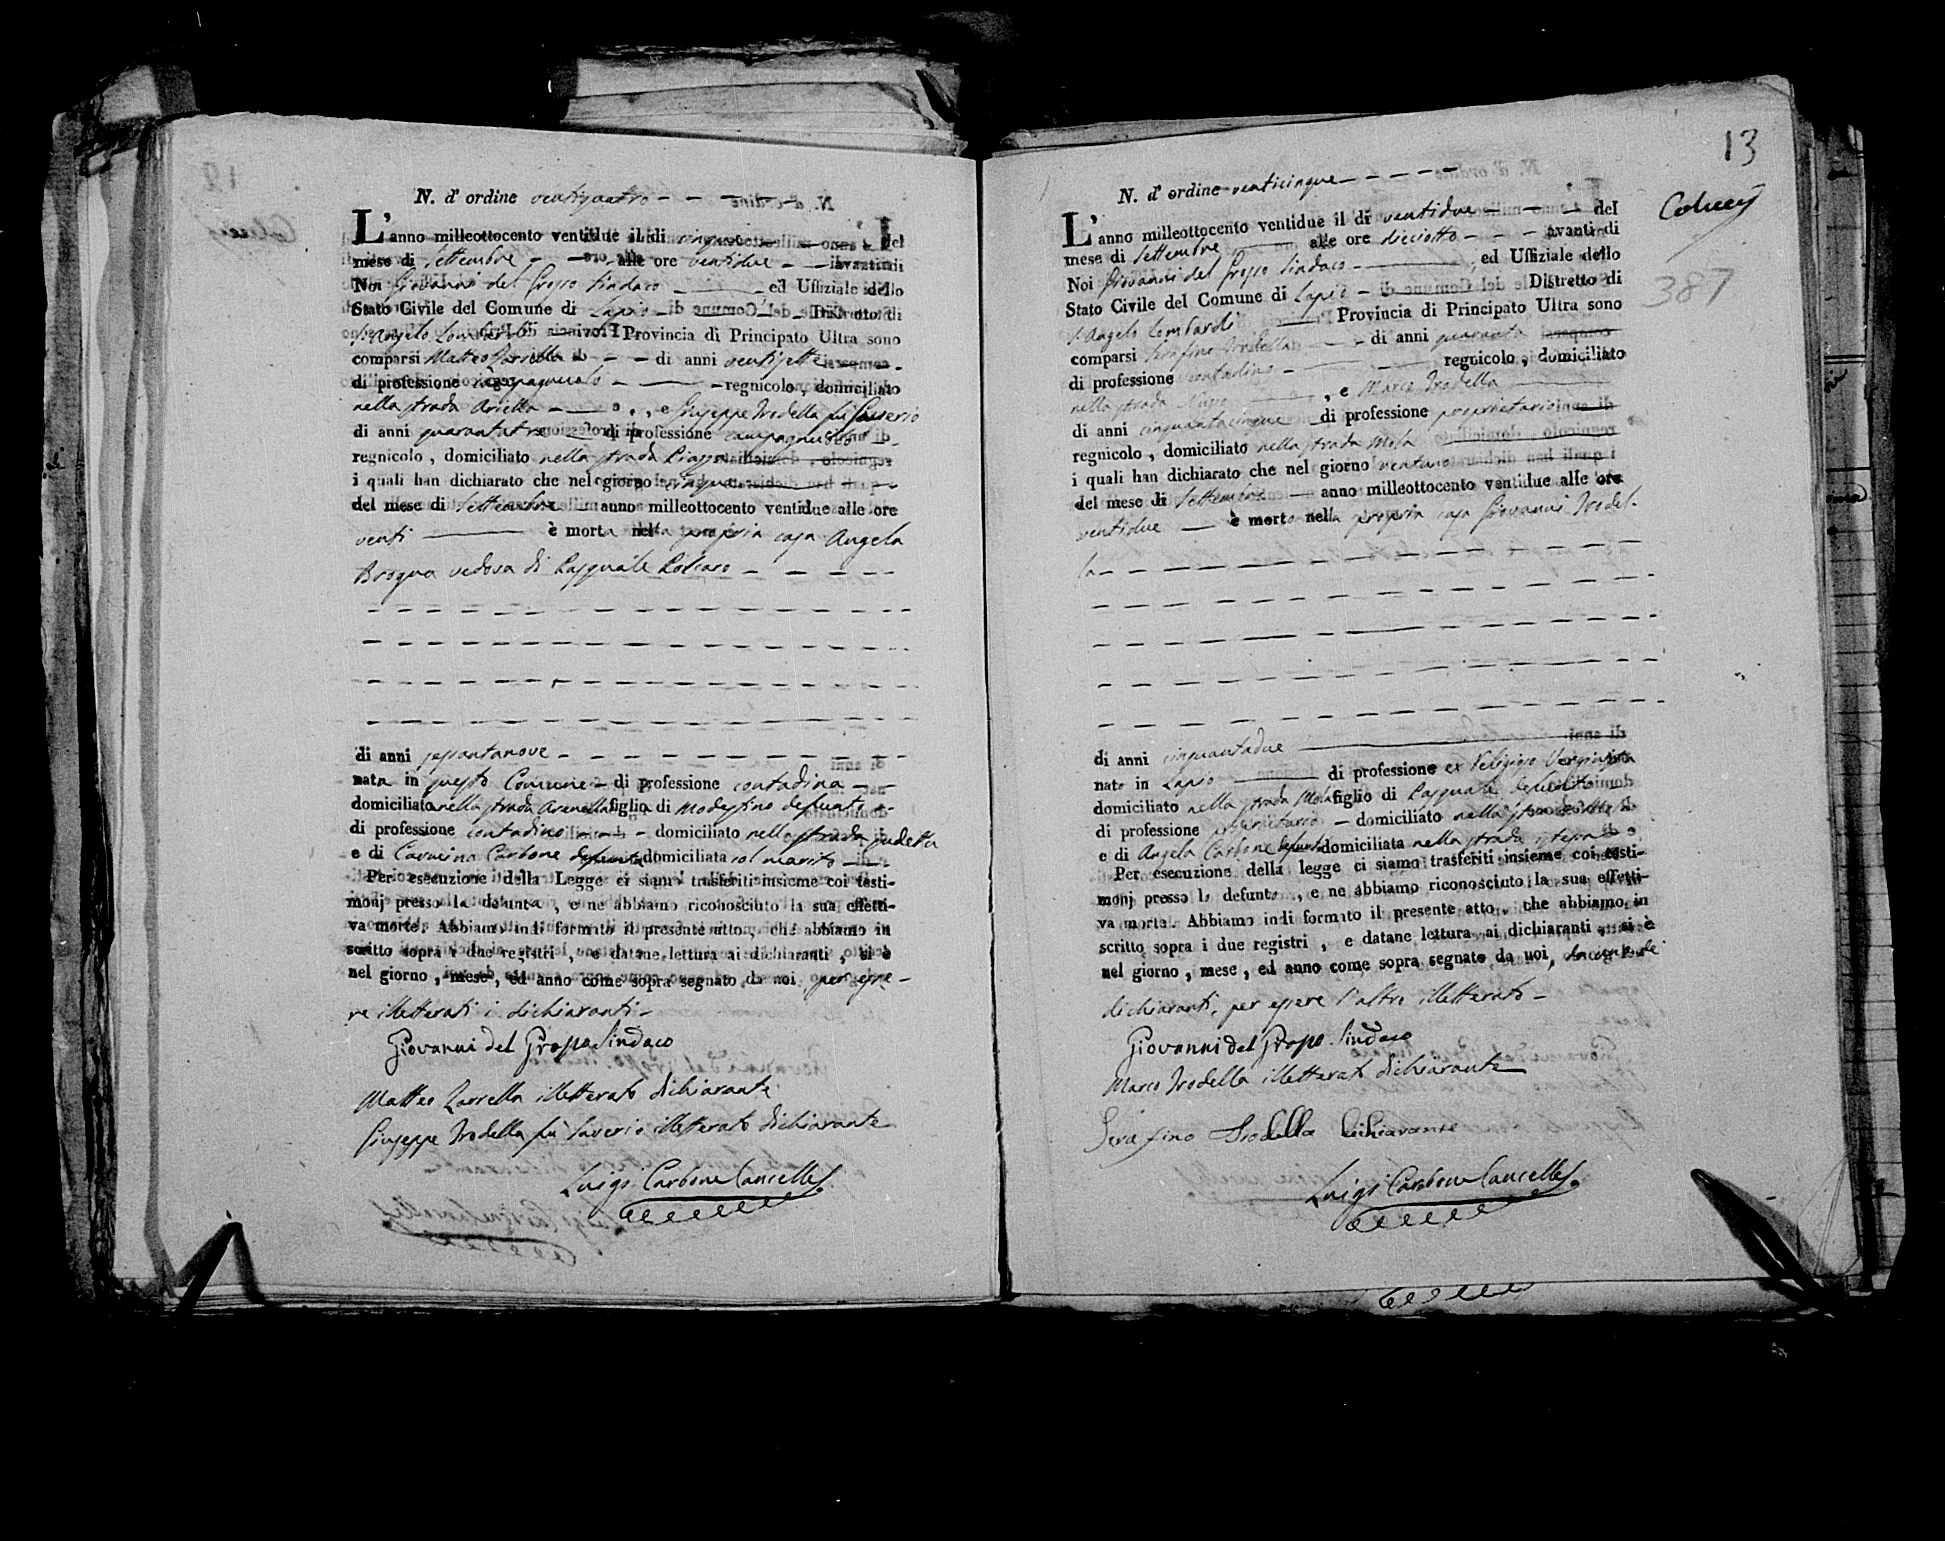 N. d' ordine ventiquattro
L' anno milleottocento ventidue il dì cinque del
mese di Settembre alle ore ventidue avanti di
Noi Giovanni del Grosso Sindaco ed Uffiziale dello
Stato Civile del Comune di Lapio Distretto di
S. Angelo Lombardi Provincia di Principato Ultra sono
comparsi Matteo Zarrella di anni ventisette
di professione regnicolo, domiciliato
nella strada Ariella, e Giuseppe Trodella fu Saverio
di anni quarantatre di professione campagnuolo
regnicolo, domiciliato nella strada Piazza
i quali han dichiarato che nel giorno cinque
del mese di Settembre anno milleottocento ventidue alle ore
venti è morta nella propria casa Angela
Brogna vedova di Pasquale Polcaro
di anni sessantanove
nata in questo Comune di professione contadina
domiciliata nella strada figlia di Modestino defunto
di professione contadino domiciliato nella strada sudetta
e di Carbone defunta domiciliata col marito
Per esecuzione della Legge ci siamo trasferiti insieme coi testi-
monj presso la defunta, e ne abbiamo riconosciuto la sua effetti-
va morte. Abbiamo indi formato il presente atto, che abbiamo in
scritto sopra i due registri, e datane lettura ai dichiaranti, si è
nel giorno, mese, ed anno come sopra segnato da noi, per esse-
re illetterati i dichiaranti
Giovanni del Grosso Sindaco
Matteo Zarrella illetterato dichiarante
Giuseppe Trodella fu Saverio illetterato dichiarante
Luigi Carbone Cancelle
13
Colucci
387
N. d' ordine venticinque
L' anno milleottocento ventidue il dì ventidue del
mese di Settembre alle ore dieciotto avanti di
Noi Giovanni del Grosso Sindaco, ed Uffiziale dello
Stato Civile del Comune di Lapio Distretto di
S. Angelo Lombardi Provincia di Principato Ultra sono
comparsi Serafino Trodella di anni quaranta
di professione contadino regnicolo, domiciliato
nella strada, e Marco Trodella
di anni cinquantacinque di professione proprietario
regnicolo, domiciliato nella strada Mela
i quali han dichiarato che nel giorno ventuno
del mese di Settembre anno milleottocento ventidue alle ore
ventidue è morto nella propria casa Giovanni Trodel-
la
di anni cinquantadue
nato in Lapio di professione ex Religioso Verginista
domiciliato nella strada Mela figlio di Pasquale
di professione proprietario domiciliato nella
e di Angela Carbone defunta domiciliata nella strada istessa
Per esecuzione della legge ci siamo trasferiti insieme coi testi-
monj presso lo defunto, e ne abbiamo riconosciuto la sua effetti-
va morte. Abbiamo indi formato il presente atto, che abbiamo in
scritto sopra i due registri, e datane lettura ai dichiaranti, si è
nel giorno, mese, ed anno come sopra segnato da noi,
dichiaranti, per essere l'altro illetterato
Giovanni del Grosso Sindaco
Marco Trodella illetterato dichiarante
Serafino Trodella dichiarante
Luigi Carbone Cancelle